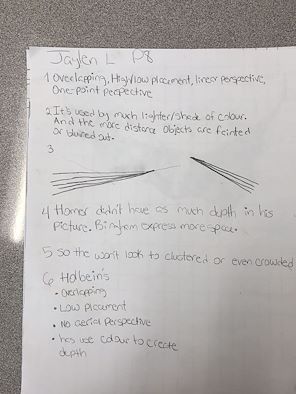 Jaylen L P8
1 Overlapping, High/low placement, linear perspective,
One-point perpective
2 It's used by much lighter/shade of colour.
And the more distance objects are feinted
or blurred out.
3
4 Homer didn't have as much depth in his
picture. Bingham express more space.
5 so the won't look to clustered or even crowded
6 Holbein's
• Overlapping
• Low placement
• No aerial perspective
• has use colour to create
depth